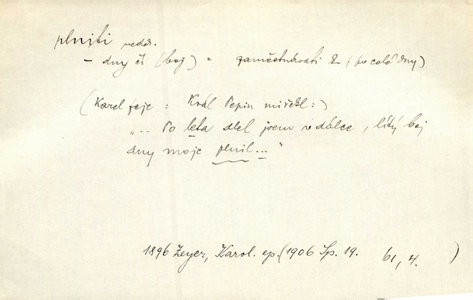 plniti nedok.
– dny čí (boj) = zaměstnávati ho (po celé dny)
(Karel praje: Král Pepin mi řekl:)
„... Po léta dlel jsem v dálce, lítý boj
dny moje plnil..."
1896 Zeyer, Karol. ep. (1906 Sp. 19. 61, 4.)